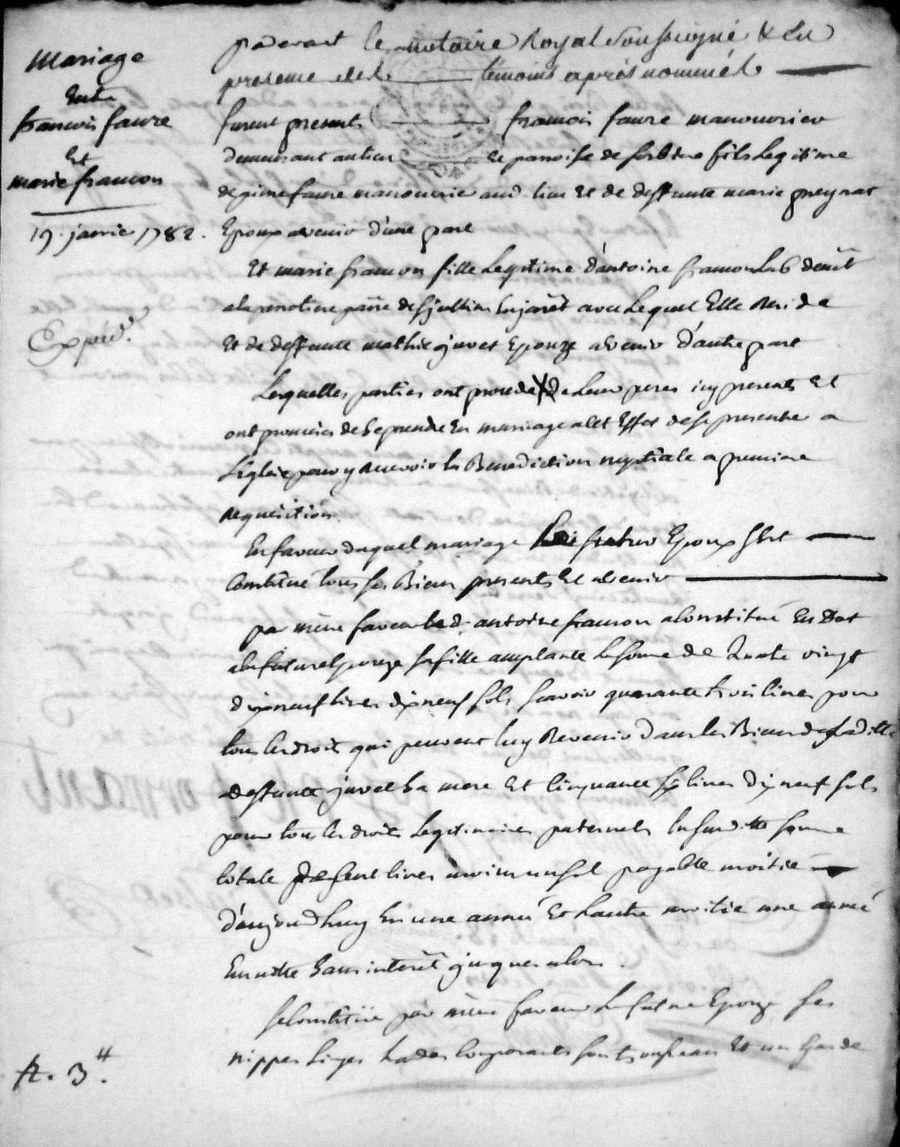 Mariage
Entre
francois faure
Et
marie francon
19. janvie 1782.
Expédié.
pardevant le notaire Royal Soussigné & En
presence des temoins aprés nommés
furent presents francois faure manouvrier
demeurant au lieu et paroisse de fils Legitime
de faure manouvrie aud. lieu Et de deffunte marie
Epoux avenir d'une part
Et marie francon fille Legitime d'antoine francon
ala parr̃e de Sͭ jullien avec Lequel Elle Reside
Et de deffunte mathie juvet Epouze avenir d'autre part
Lesquelles parties ont procede de Leurs peres icy presents Et
ont promies de Se prendre En mariage a cet Effet de se presenter a
L'eglize pour y Recevoir la Benediction nuptiale a premiere
Requisition
En faveur duquel mariage Le futur Epoux s'est
Constitue tous ses Biens presents Et avenir
par même faveur led. antoine francon a Constitué En Dot
ala future Epouze sa fille acceptante La somme de Quatre vingt
dixneuf livres dixneuf sols scavoir quarante trois livres pour
tous les droits qui peuvent luy Revenir dans les Biens de Laditte
deffunte juvet Sa mere Et Cinquante Six livres dixneuf sols
pour tous les droits Legitimaires paternels La susditte somme
totale de Cent livres moins un sol payable moitié
d'aujourdhuy En une année Et L'autre moitié une année
Ensuitte Sans interêt jusques alors.
Se Constitüe par même faveur La future Epouze Ses
nippes Linges hardes Composants son trousseau Et un Garde
R. 3ᵗᵗ.